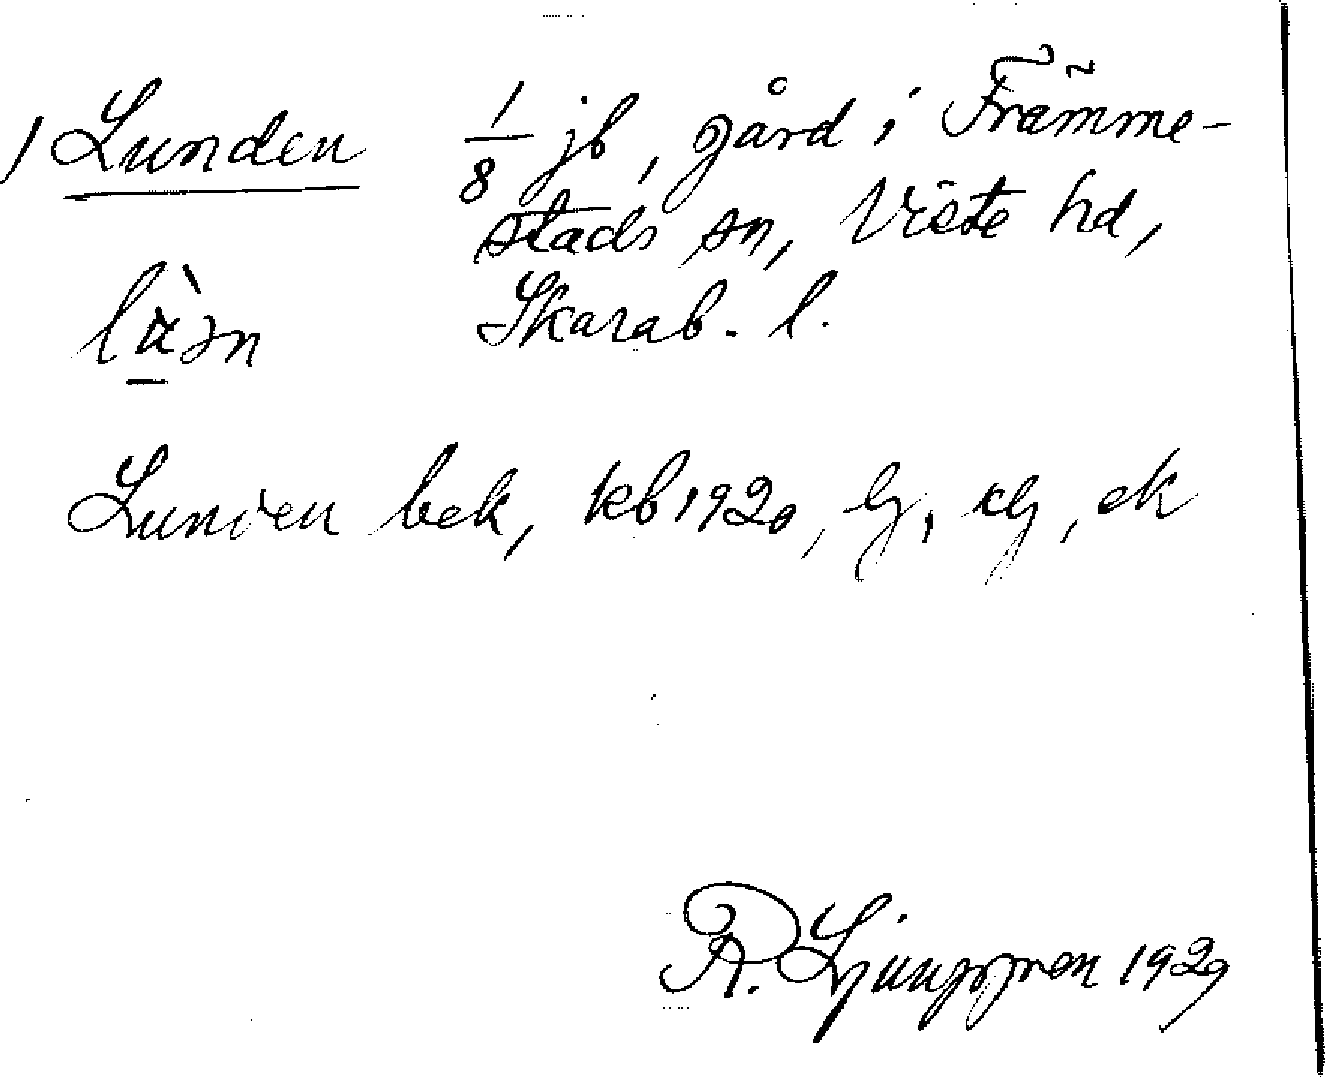 1) Lunden 1/8 jb, gård i Främme-
stads sn, Viste hd,
Skarab. l.
Lunden bek, kb 1920, Eg, eg, ek
R. Ljunggren 1929